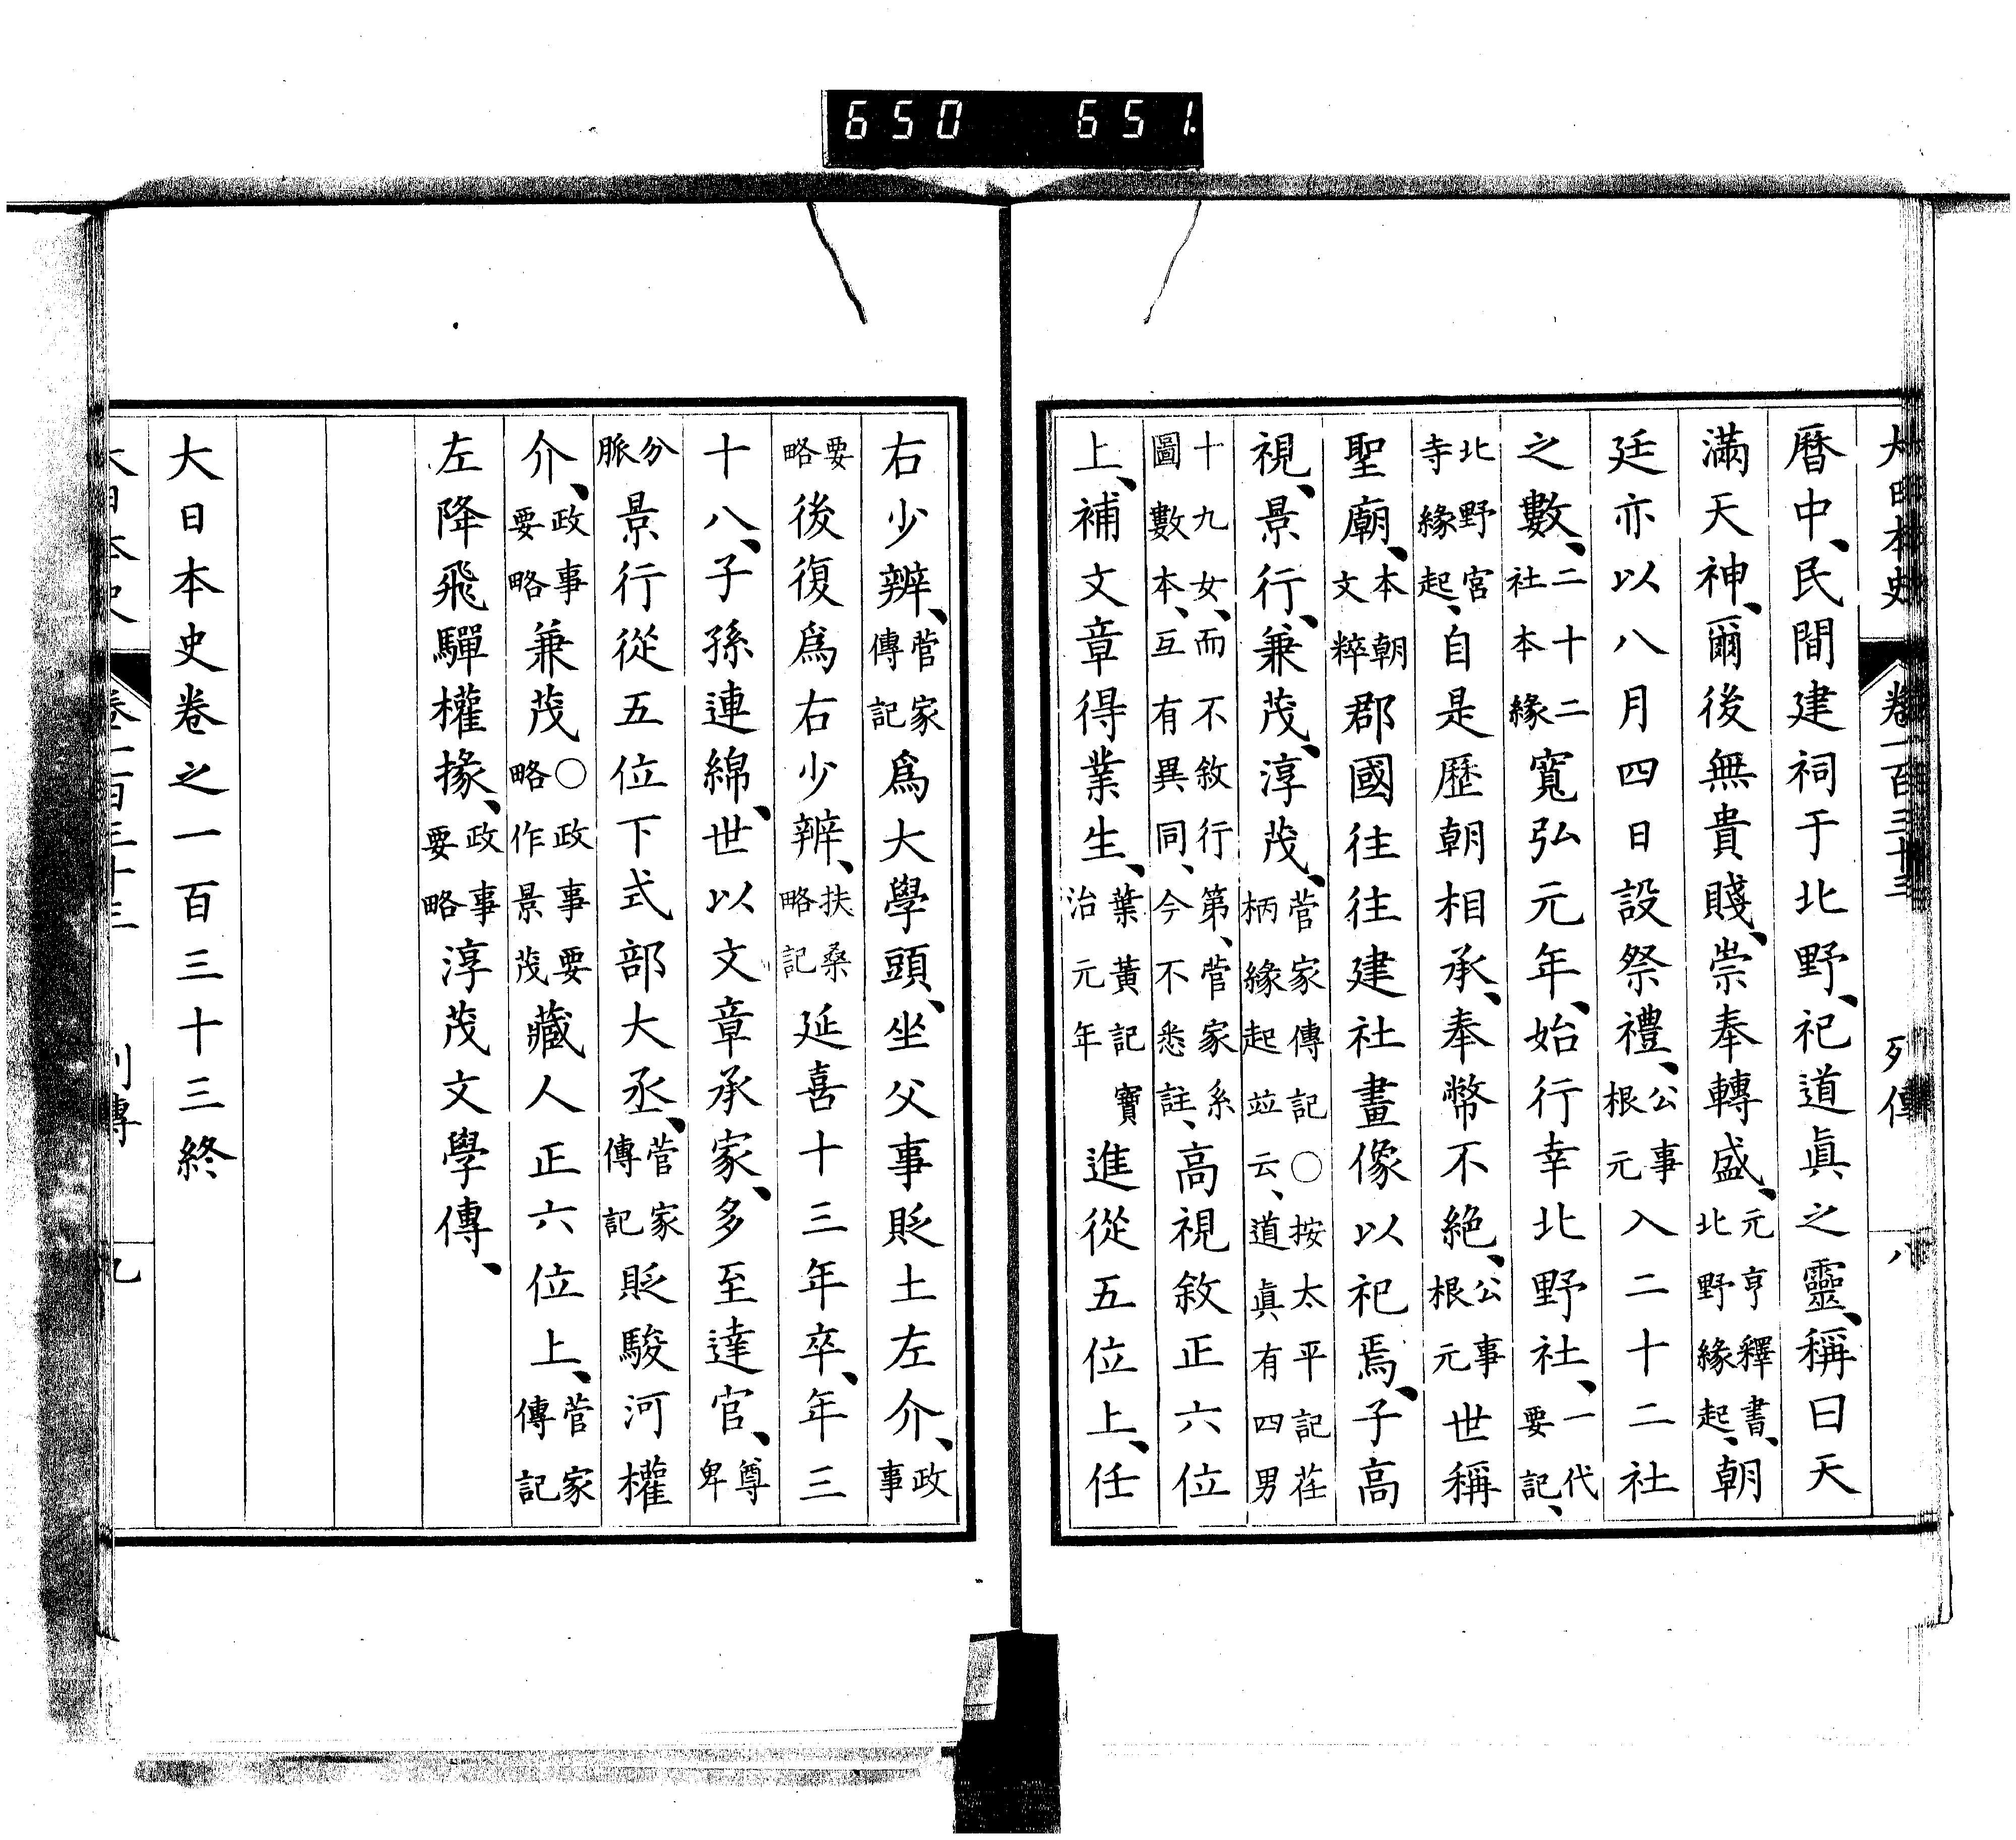 650 651
大日本史 卷一百三十三 列傳 八
曆中、民間建祠于北野、祀道眞之靈、稱曰天
滿天神、爾後無貴賤、崇奉轉盛、元亨釋書、北野緣起、朝
廷亦以八月四日設祭禮、公事根元入二十二社
之數、二十二社本緣寬弘元年、始行幸北野社、一代要記、
北野宮寺緣起、自是歷朝相承、奉幣不絕、公事根元世稱
聖廟、本朝文粹郡國往往建社畫像以祀焉、子高
視、景行、兼茂、淳茂、菅家傳記○按太平記荏柄緣起竝云、道眞有四男
十九女、而不敘行第、菅家系圖數本、互有異同、今不悉註、高視敘正六位
上、補文章得業生、葉黃記寶治元年進從五位上、任
右少辨、菅家傳記爲大學頭、坐父事貶土左介、政事
要略後復爲右少辨、扶桑略記延喜十三年卒、年三
十八、子孫連綿、世以文章承家、多至達官、尊卑
分脈景行從五位下式部大丞、菅家傳記貶駿河權
介、政事要略兼茂○政事要略作景茂藏人正六位上、菅家傳記
左降飛驒權掾、政事要略淳茂文學傳、
大日本史卷之一百三十三終
大日本史 卷一百三十三 列傳 九